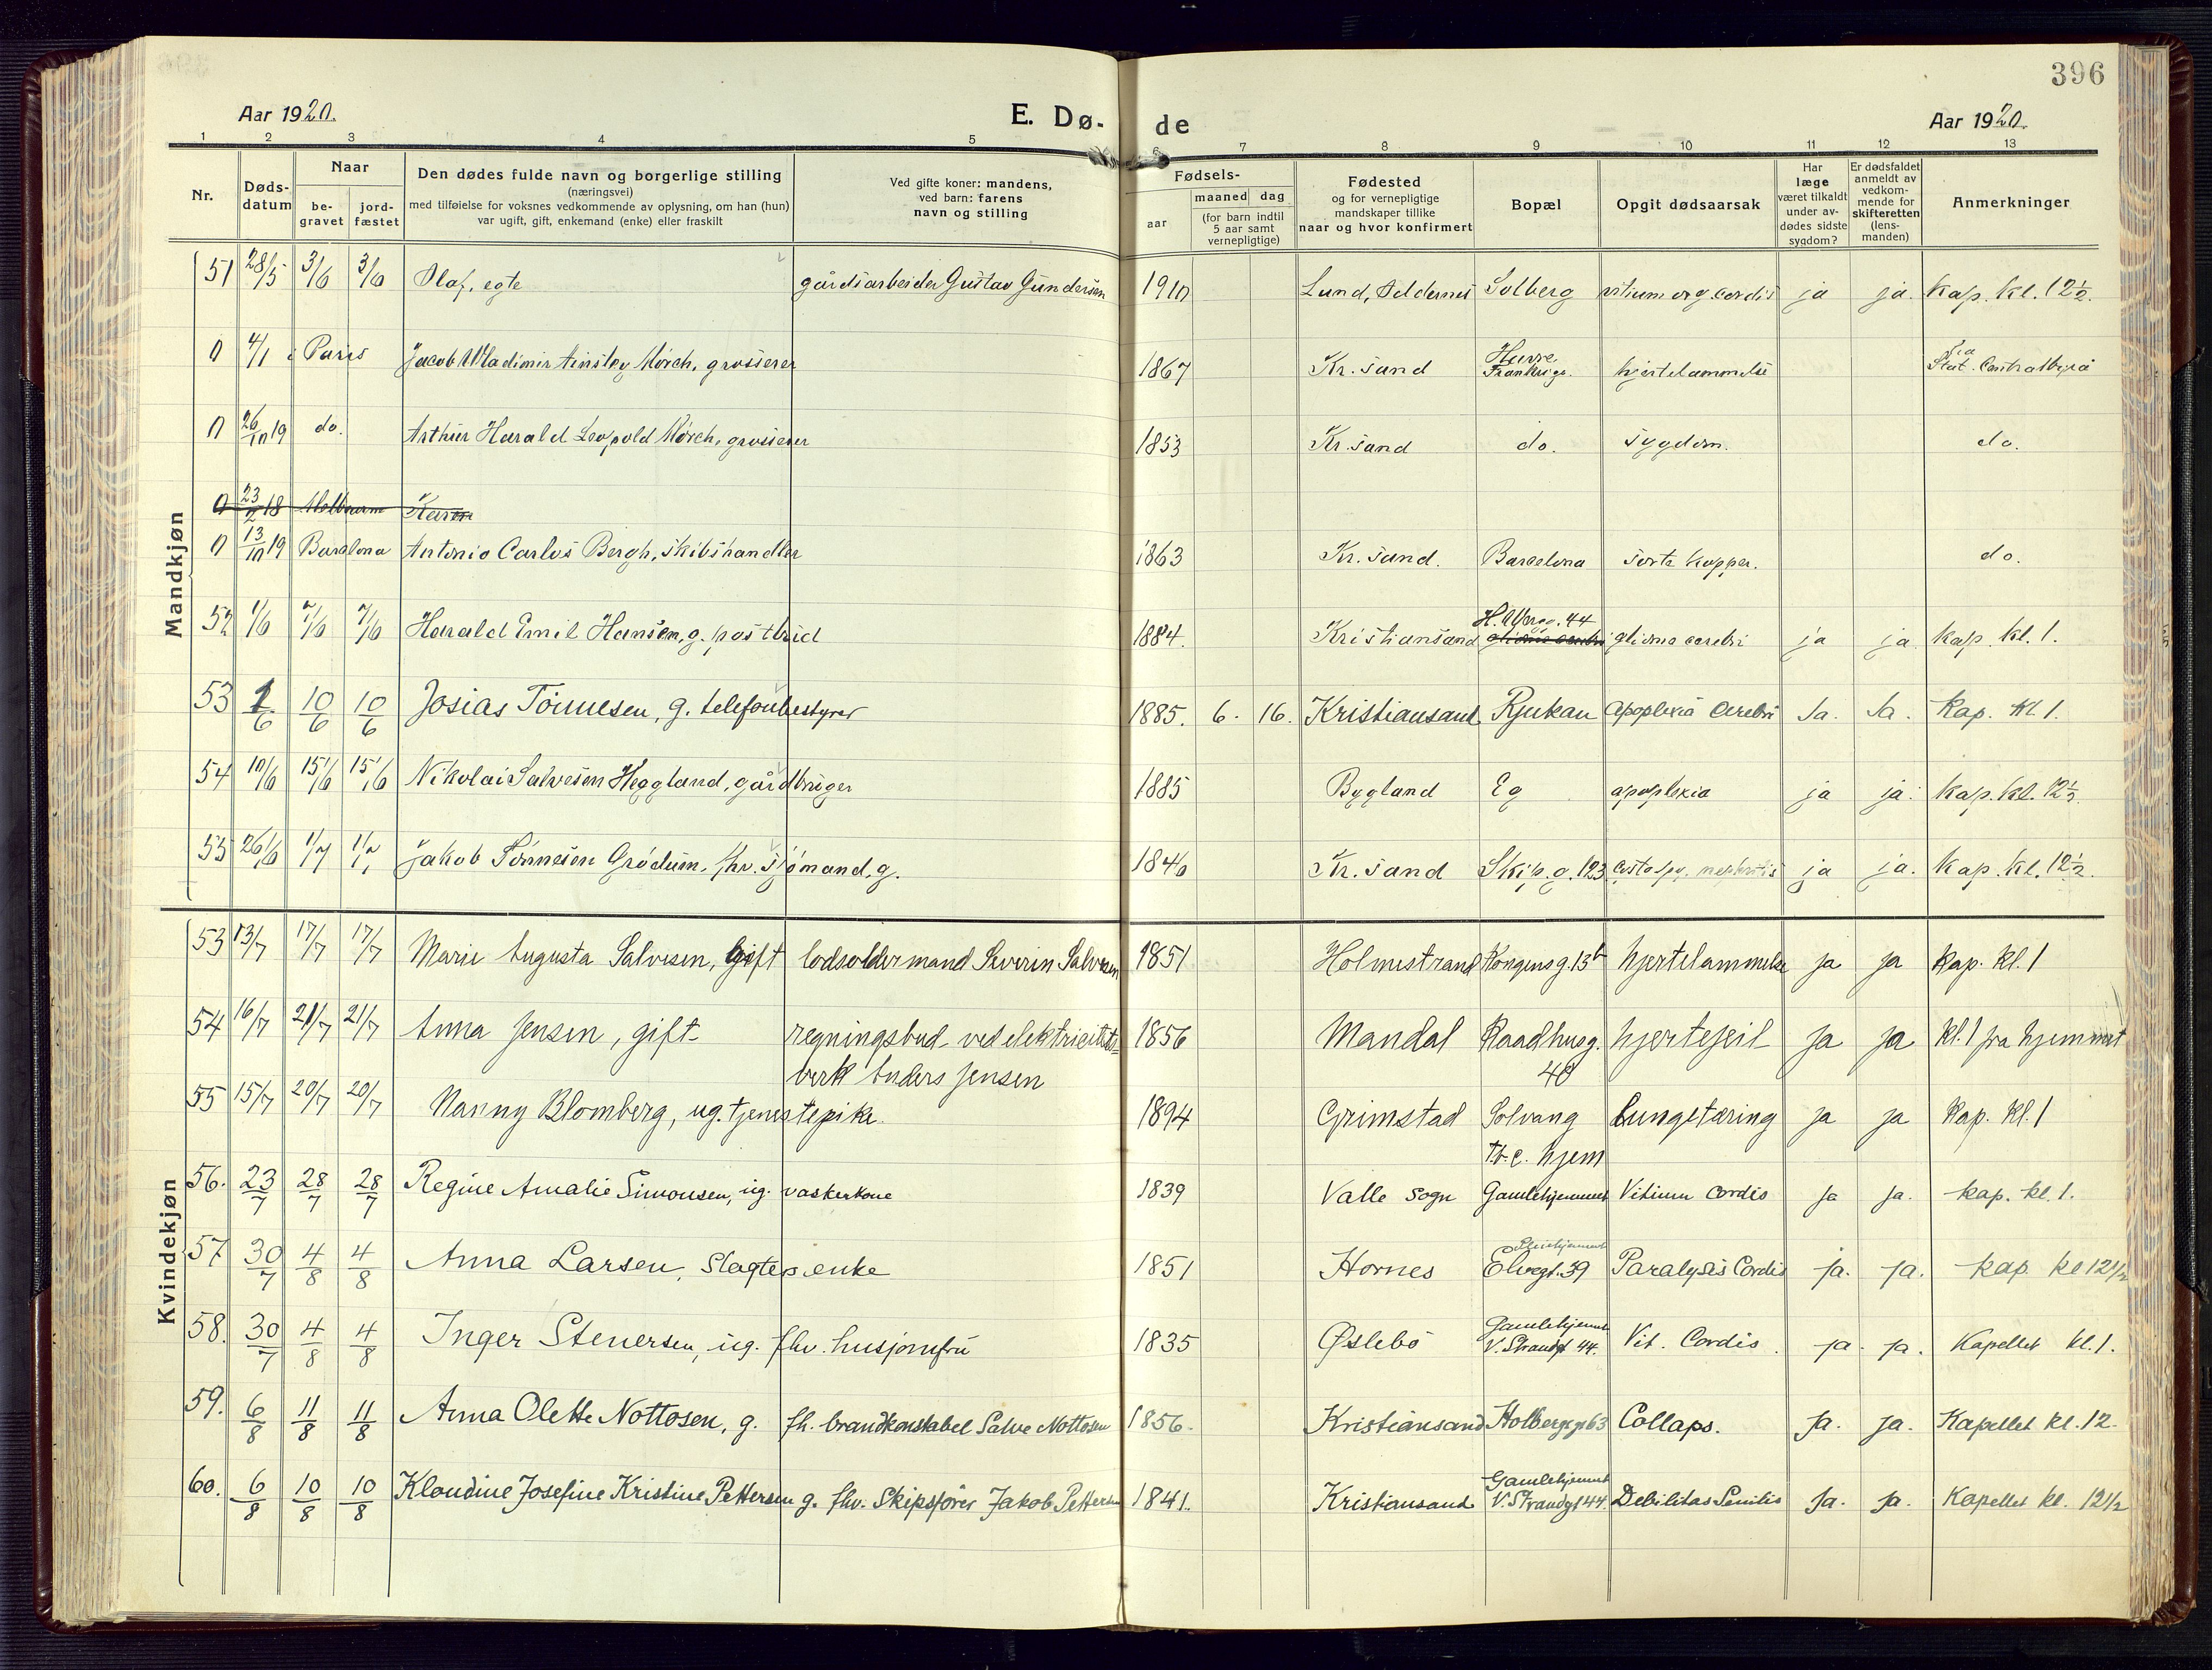 396
Aar 1920. E. Dø- de Aar 1920.
1 2 3 4 5 6 7 8 9 10 11 12 13
Nr. Døds-datum Naar be-gravet jord-fæstet Den dødes fulde navn og borgerlige stilling (næringsvei) med tilføielse for voksnes vedkommende av oplysning, om han (hun) var ugift, gift, enkemand (enke) eller fraskilt Ved gifte koner: mandens, ved barn: farens navn og stilling Fødsels- aar maaned dag (for barn indtil 5 aar samt vernepligtige) Fødested og for vernepligtige mandskaper tillike naar og hvor konfirmert Bopæl Opgit dødsaarsak Har læge været tilkaldt under av-dødes sidste sygdom? Er dødsfaldet anmeldt av vedkom-mende for skifteretten (lens-manden) Anmerkninger
Mandkjøn
51 28/5 3/6 3/6 Olaf, egte gårdsarbeider Gustav Gundersen 1910 Lund, Oddernes Solberg vitium org. cordis ja ja. kap. kl. 12½.
0 4/1 i Paris Jacob Wladimir Ainsley Mörch, grosserer 1867 Kr.sand Havre Frankrige. hjertelammelse Fra Stat. Centralbyrå
0 26/10 19 do. Arthur Harald Leopold Mörch, grosserer 1853 Kr.sand do. sygdom. do.
0 23/2 18 Melbourne Karon
0 13/10 19 Barcelona Antonio Carlos Bergh, skibshandler 1863 Kr.sand. Barcelona sorte kopper. do.
52 1/6 7/6 7/6 Harald Emil Hansen, g. postbud 1884. Kristiansand H. Wergg. 44 glioma cerebri glioma cerebri ja ja kap. kl. 1.
53 1/6 10/6 10/6 Josias Tönnesen, g. telefonbestyrer 1885. 6. 16. Kristiansand Rjukan Apoplexia Cerebri Ja. Ja. Kap. Kl 1.
54 10/6 15/6 15/6 Nikolai Salvesen Heggland, gårdbruger 1885 Bygland Eg apoplexia ja ja. kap. kl. 12½.
55 26/6 1/7 1/7 Jakob Tönnesen Grödum, fhv. sjömand, g. 1846 Kr.sand Skip.g. 123 nephritis ja ja. kap. kl. 12½.
Kvindekjøn
53 13/7 17/7 17/7 Marie Augusta Salvesen, gift lodsoldermand Severin Salvesen 1851 Holmestrand Kongensg. 13b hjertelammelse ja ja kap. kl. 1
54 16/7 21/7 21/7 Anna Jensen, gift regningsbud ved elektricitets- 1856 Mandal Raadhusg. 40 hjertefeil ja ja kl. 1 fra hjemmet
verk Anders Jensen
55 15/7 20/7 20/7 Nanny Blomberg, ug. tjenestepike. 1894 Grimstad Solvang tb.c. hjem Lungetæring ja ja kap. kl. 1
56. 23/7 28/7 28/7 Regine Amalie Simonsen, ug. vaskerkone 1839 Valle Sogn Gamlehjemmet Vitium Cordis ja ja. kap. kl. 1.
57 30/7 4/8 4/8 Anna Larsen, Slagter enke 1851 Hornes Elvegt. 39 Paralysis Cordis ja. ja. kap. kl 12½
58. 30/7 4/8 4/8 Inger Stenersen, ug. fhv. husjomfru 1835 Øslebö Gamlehjemmet V. Strandgt 44. Vit. Cordis ja. ja. Kapellet kl. 1.
59. 6/8 11/8 11/8 Anna Olette Nottosen, g. fh. brandkonstabel Salve Nottosen 1856. Kristiansand Holbergsgt 63 Collaps. Ja. ja. Kapellet kl. 12.
60. 6/8 10/8 10/8 Klaudine Josefine Kristine Pettersen g. fhv. Skipsfører Jakob Pettersen 1841. Kristiansand Gamlehjemmet V. Strandgt 44. Debilitas Senilis Ja. Ja. Kapellet kl. 12½